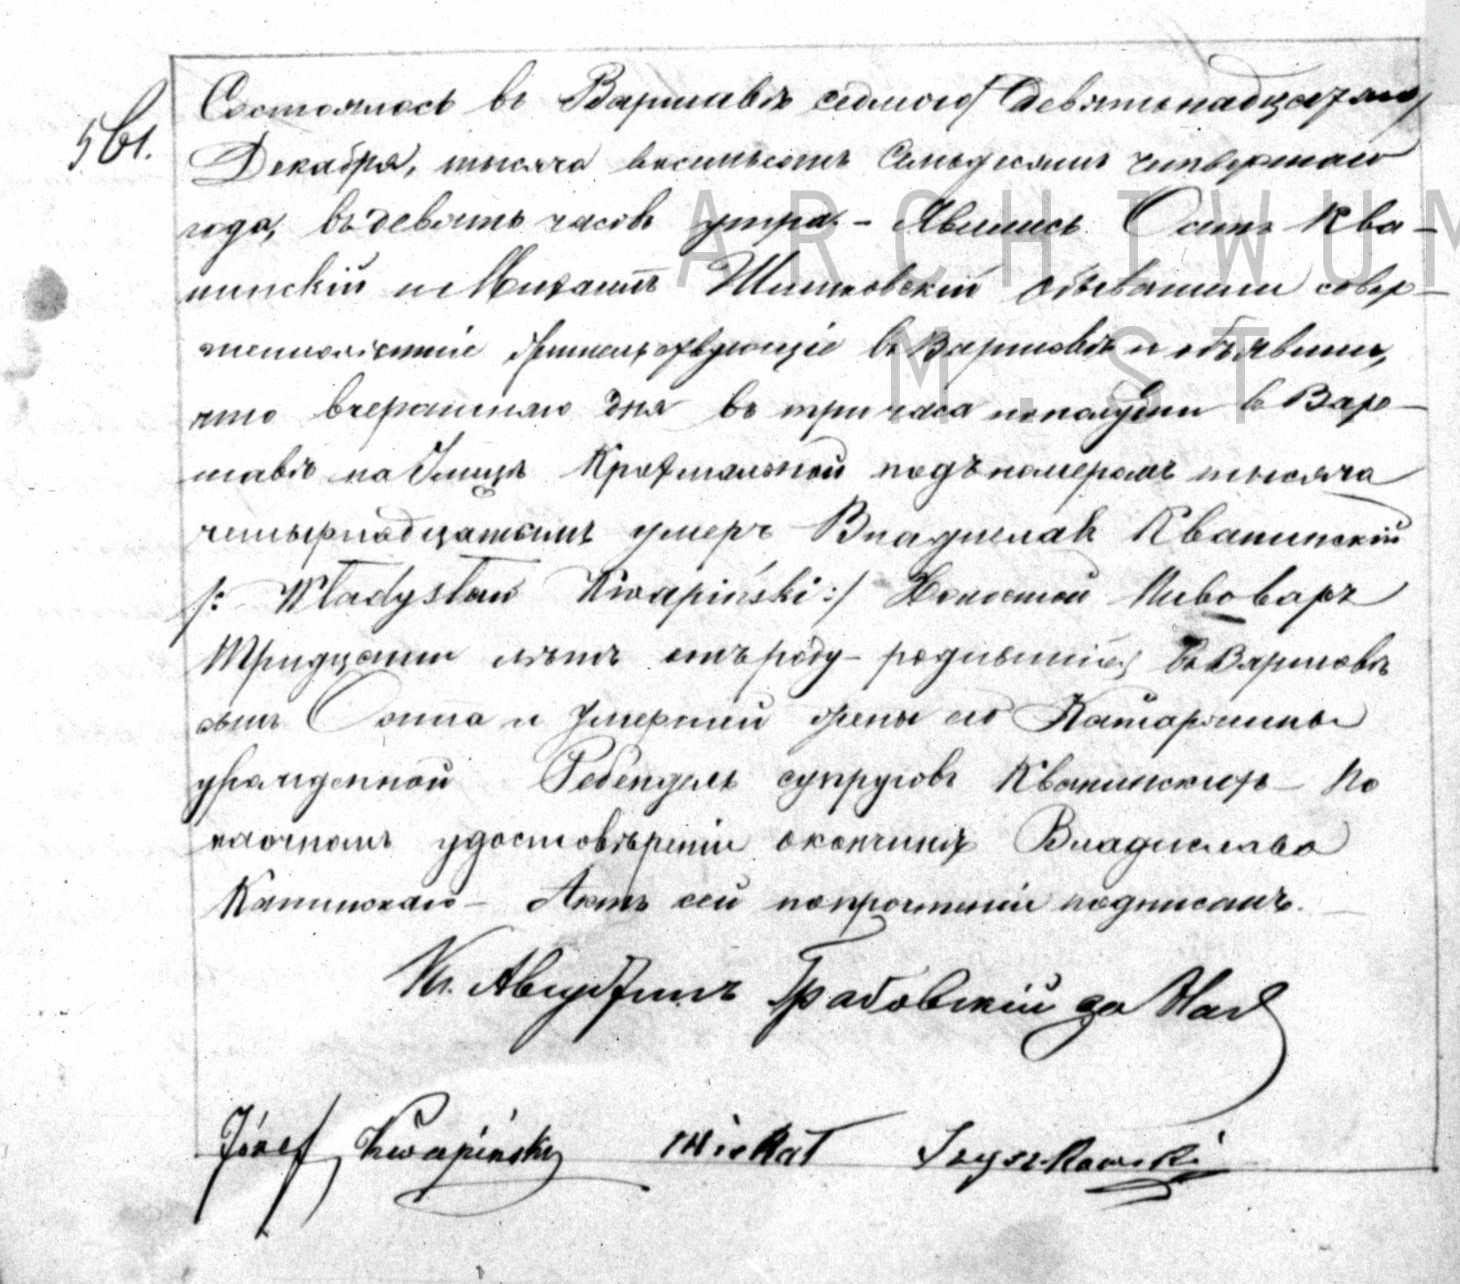 561.
Состоялось въ Варшавѣ седмого/девятьнадцатаго/
Декабря, тысяча восимьсотъ Семьдесятъ четвертаго
года, въ девять часовъ утра. – Явились Осипъ Ква–
пинскій и Михаилъ Шишковскій обыватели совер–
шеннолѣтніе жительствующіе въ Варшавѣ и объявили,
что вчерашняго дня въ три часа пополудни въ Вар–
шавѣ на Улицѣ Крохмальной подъ номеромъ тысяча
четырнадцатымъ умеръ Владиславъ Квапинскій
/: Władysław Kwapiński :/ Холостой Пивоваръ
Тридцати лѣтъ отъ роду – родившійся въ Варшавѣ
сынъ Осипа и Умершей жены его Катаржины
урожденной Ребендель супруговъ Квапинскихъ – По
наочномъ удостовѣреніи окончины Владислава
Капинскаго – Актъ сей по прочтеніи подписанъ. –
Кс. Августинъ Грабовскій за Нас
Józef Kwapiński Michał Szyszkowski
ARCHIWUM
M. ST